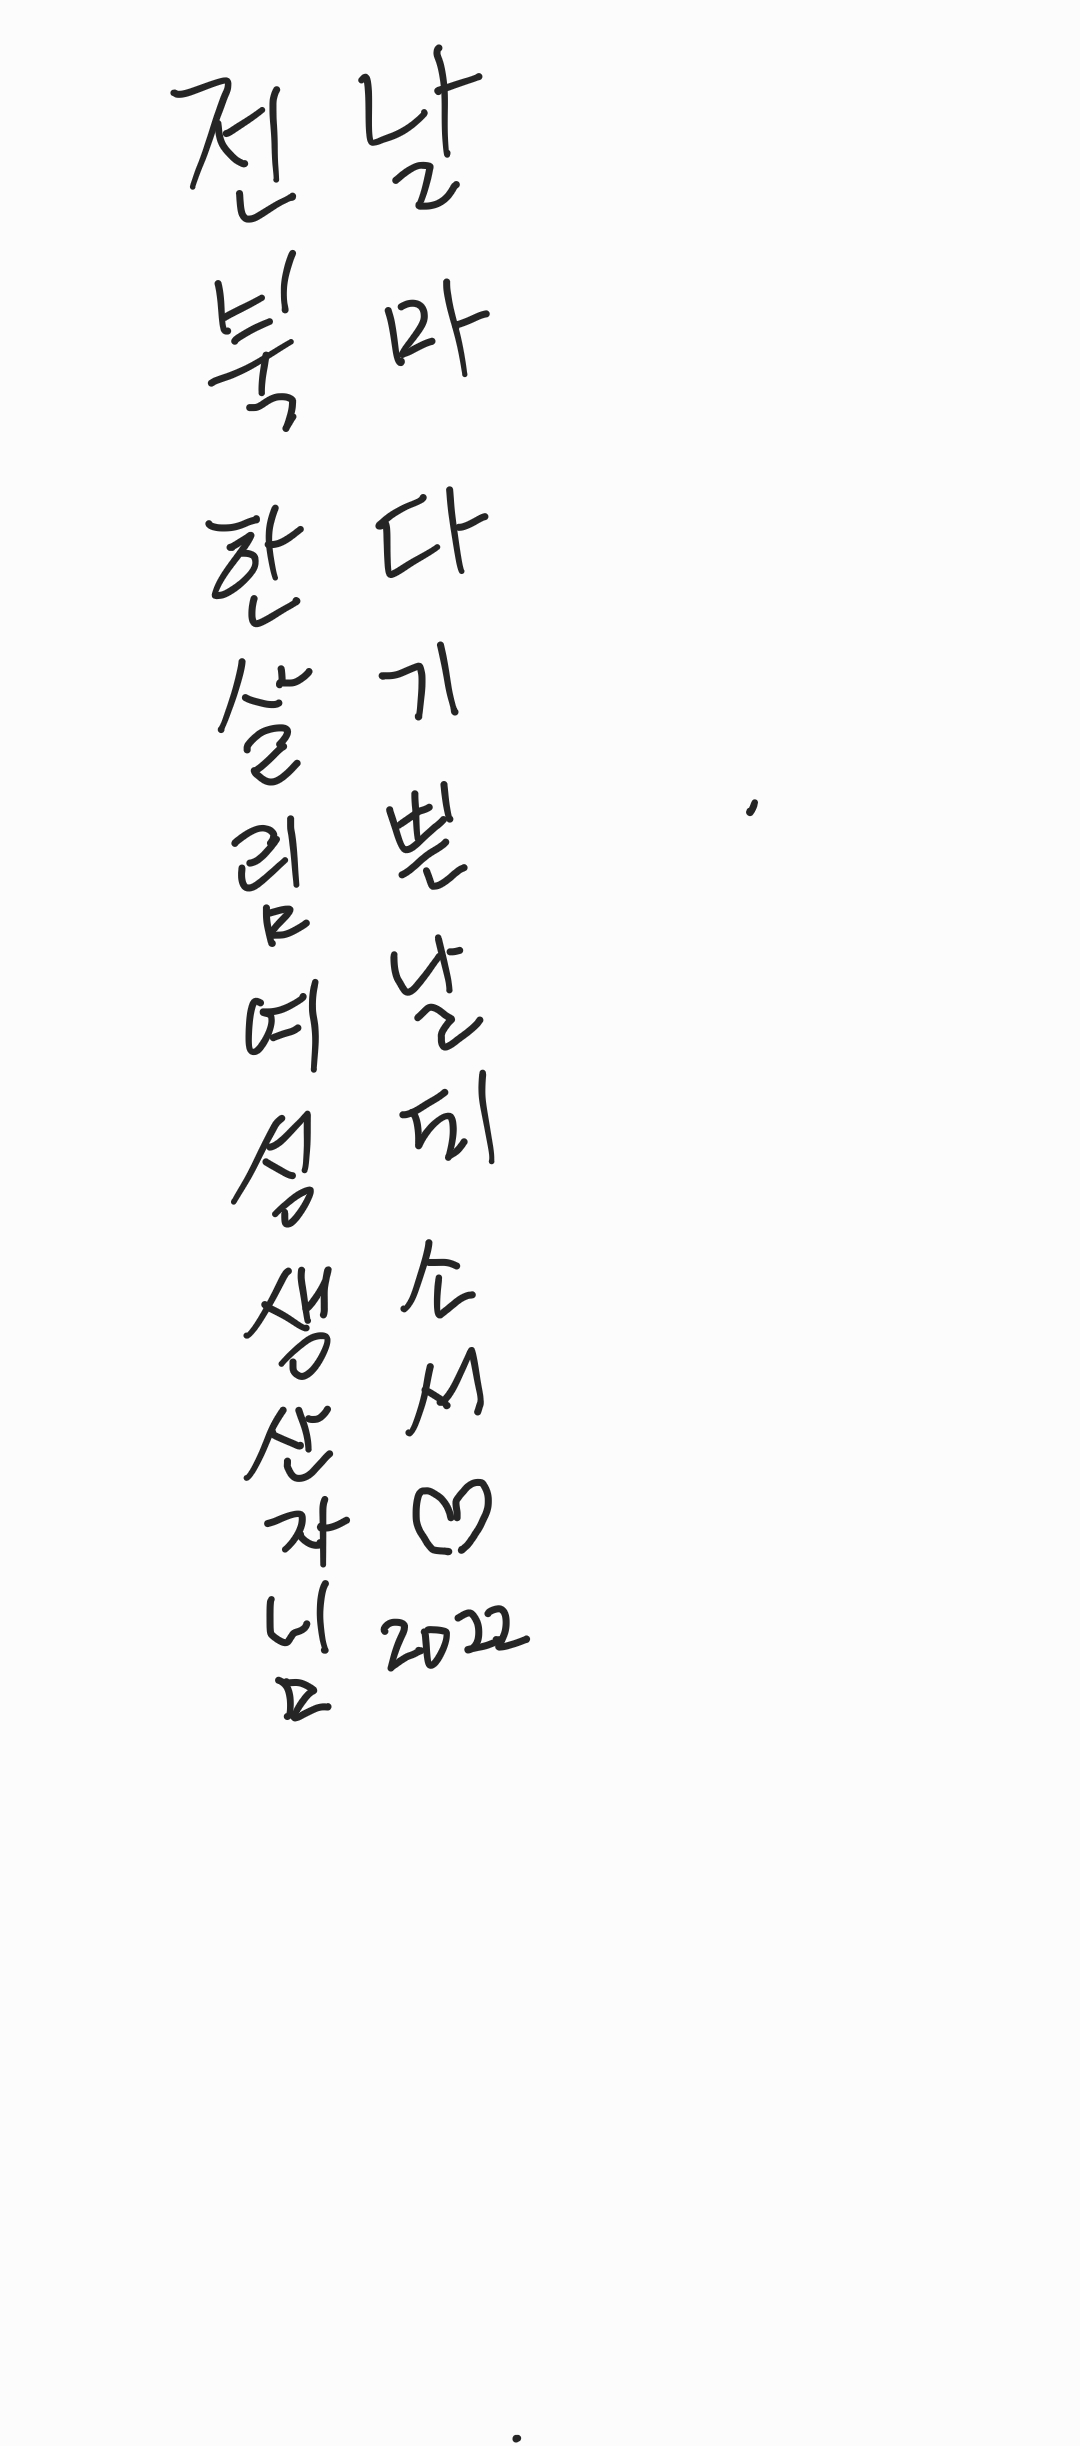 전북 한살림여성생산자님
날마다기쁜날되소서♡2022